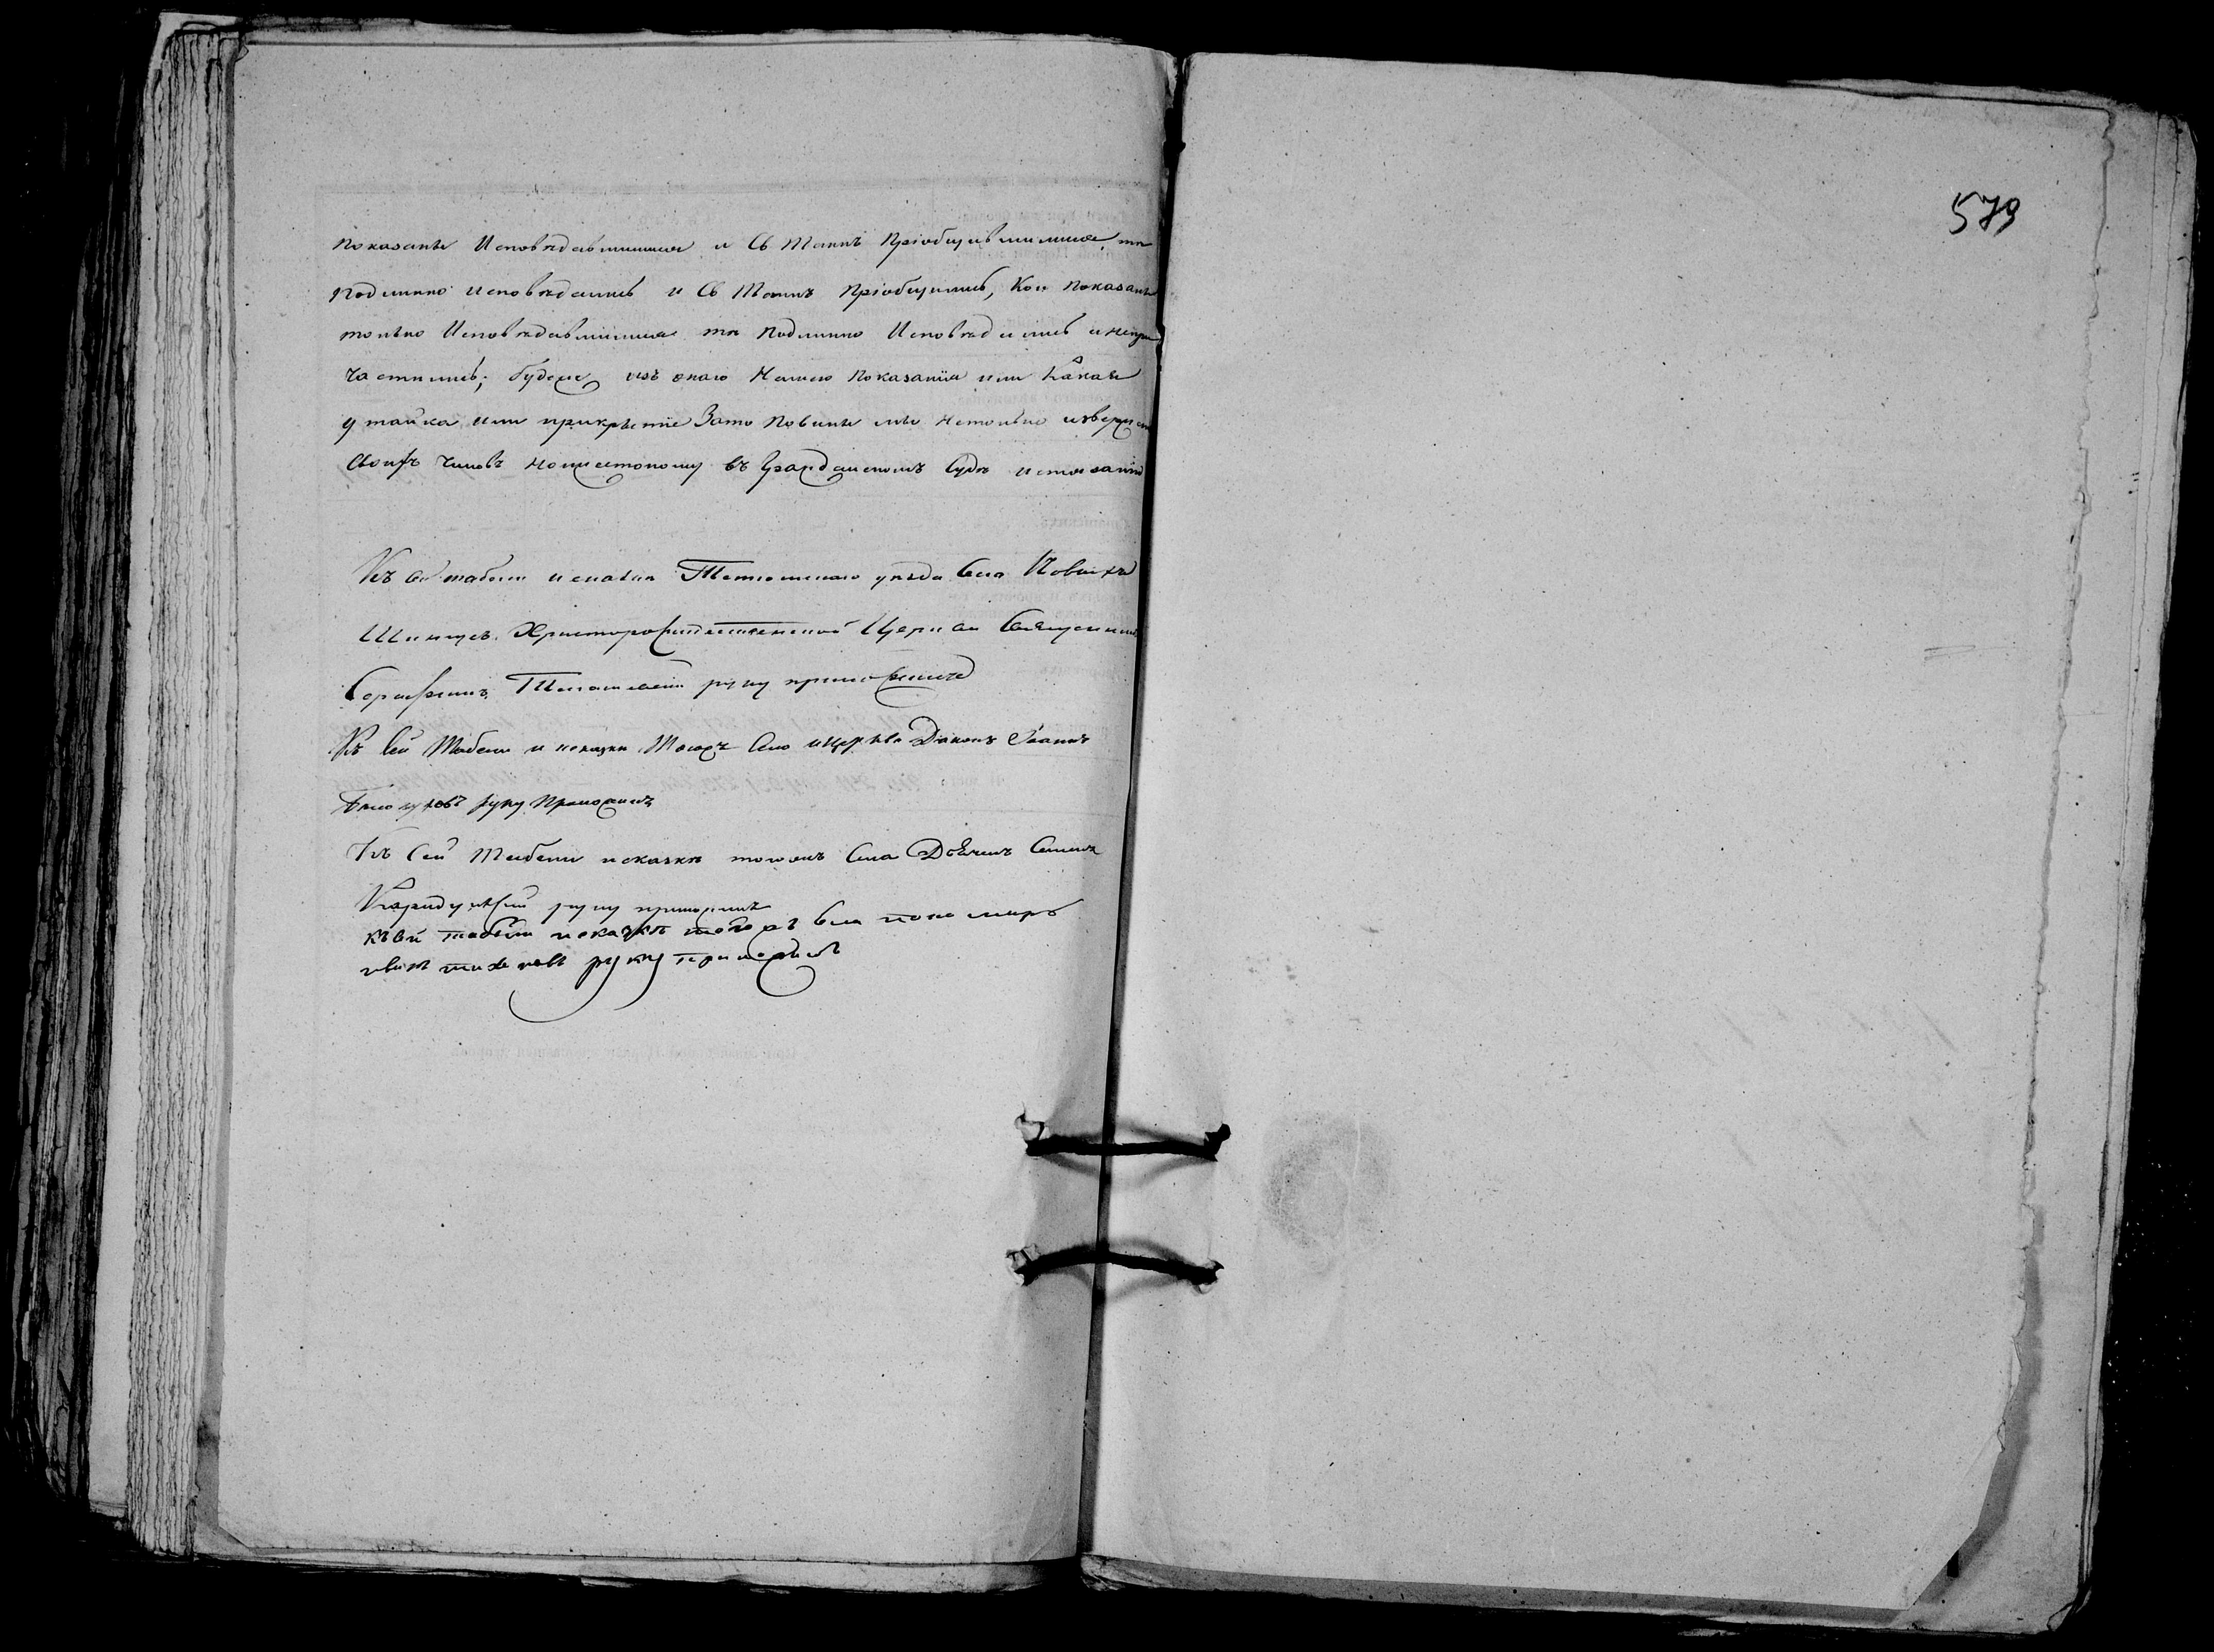 показаны Исповѣдавшимися и Св Таинъ Пріобщившимися, тѣ
Подлинно исповѣдались и Св Таинъ Пріобщились, Кои Показаны
только Исповѣдавшимися тѣ Подлинно Исповѣдались и непри
частились; будеже изъ онаго Нашего Показанія или Какая
утайка или прикрытіе Зато Повинны мы нетолько извержен
Своихъ Чиновъ Но и жестокому въ Гражданскомъ Судѣ истязанію
Къ сей табели и сказки Тетюшскаго уѣзда Села Новыхъ
Христорождественской Церкви Священникъ
Серафимъ руку приложилъ
Къ Сей Табели и сказки Тогожъ Села и церкви Діаконъ Іоаннъ
руку Приложилъ
Къ Сей Табели и сказкѣ тогожъ Села Дьячекъ
руку приложилъ
къ сей табели и сказкѣ тогожъ села пономарь
руку приложилъ
579